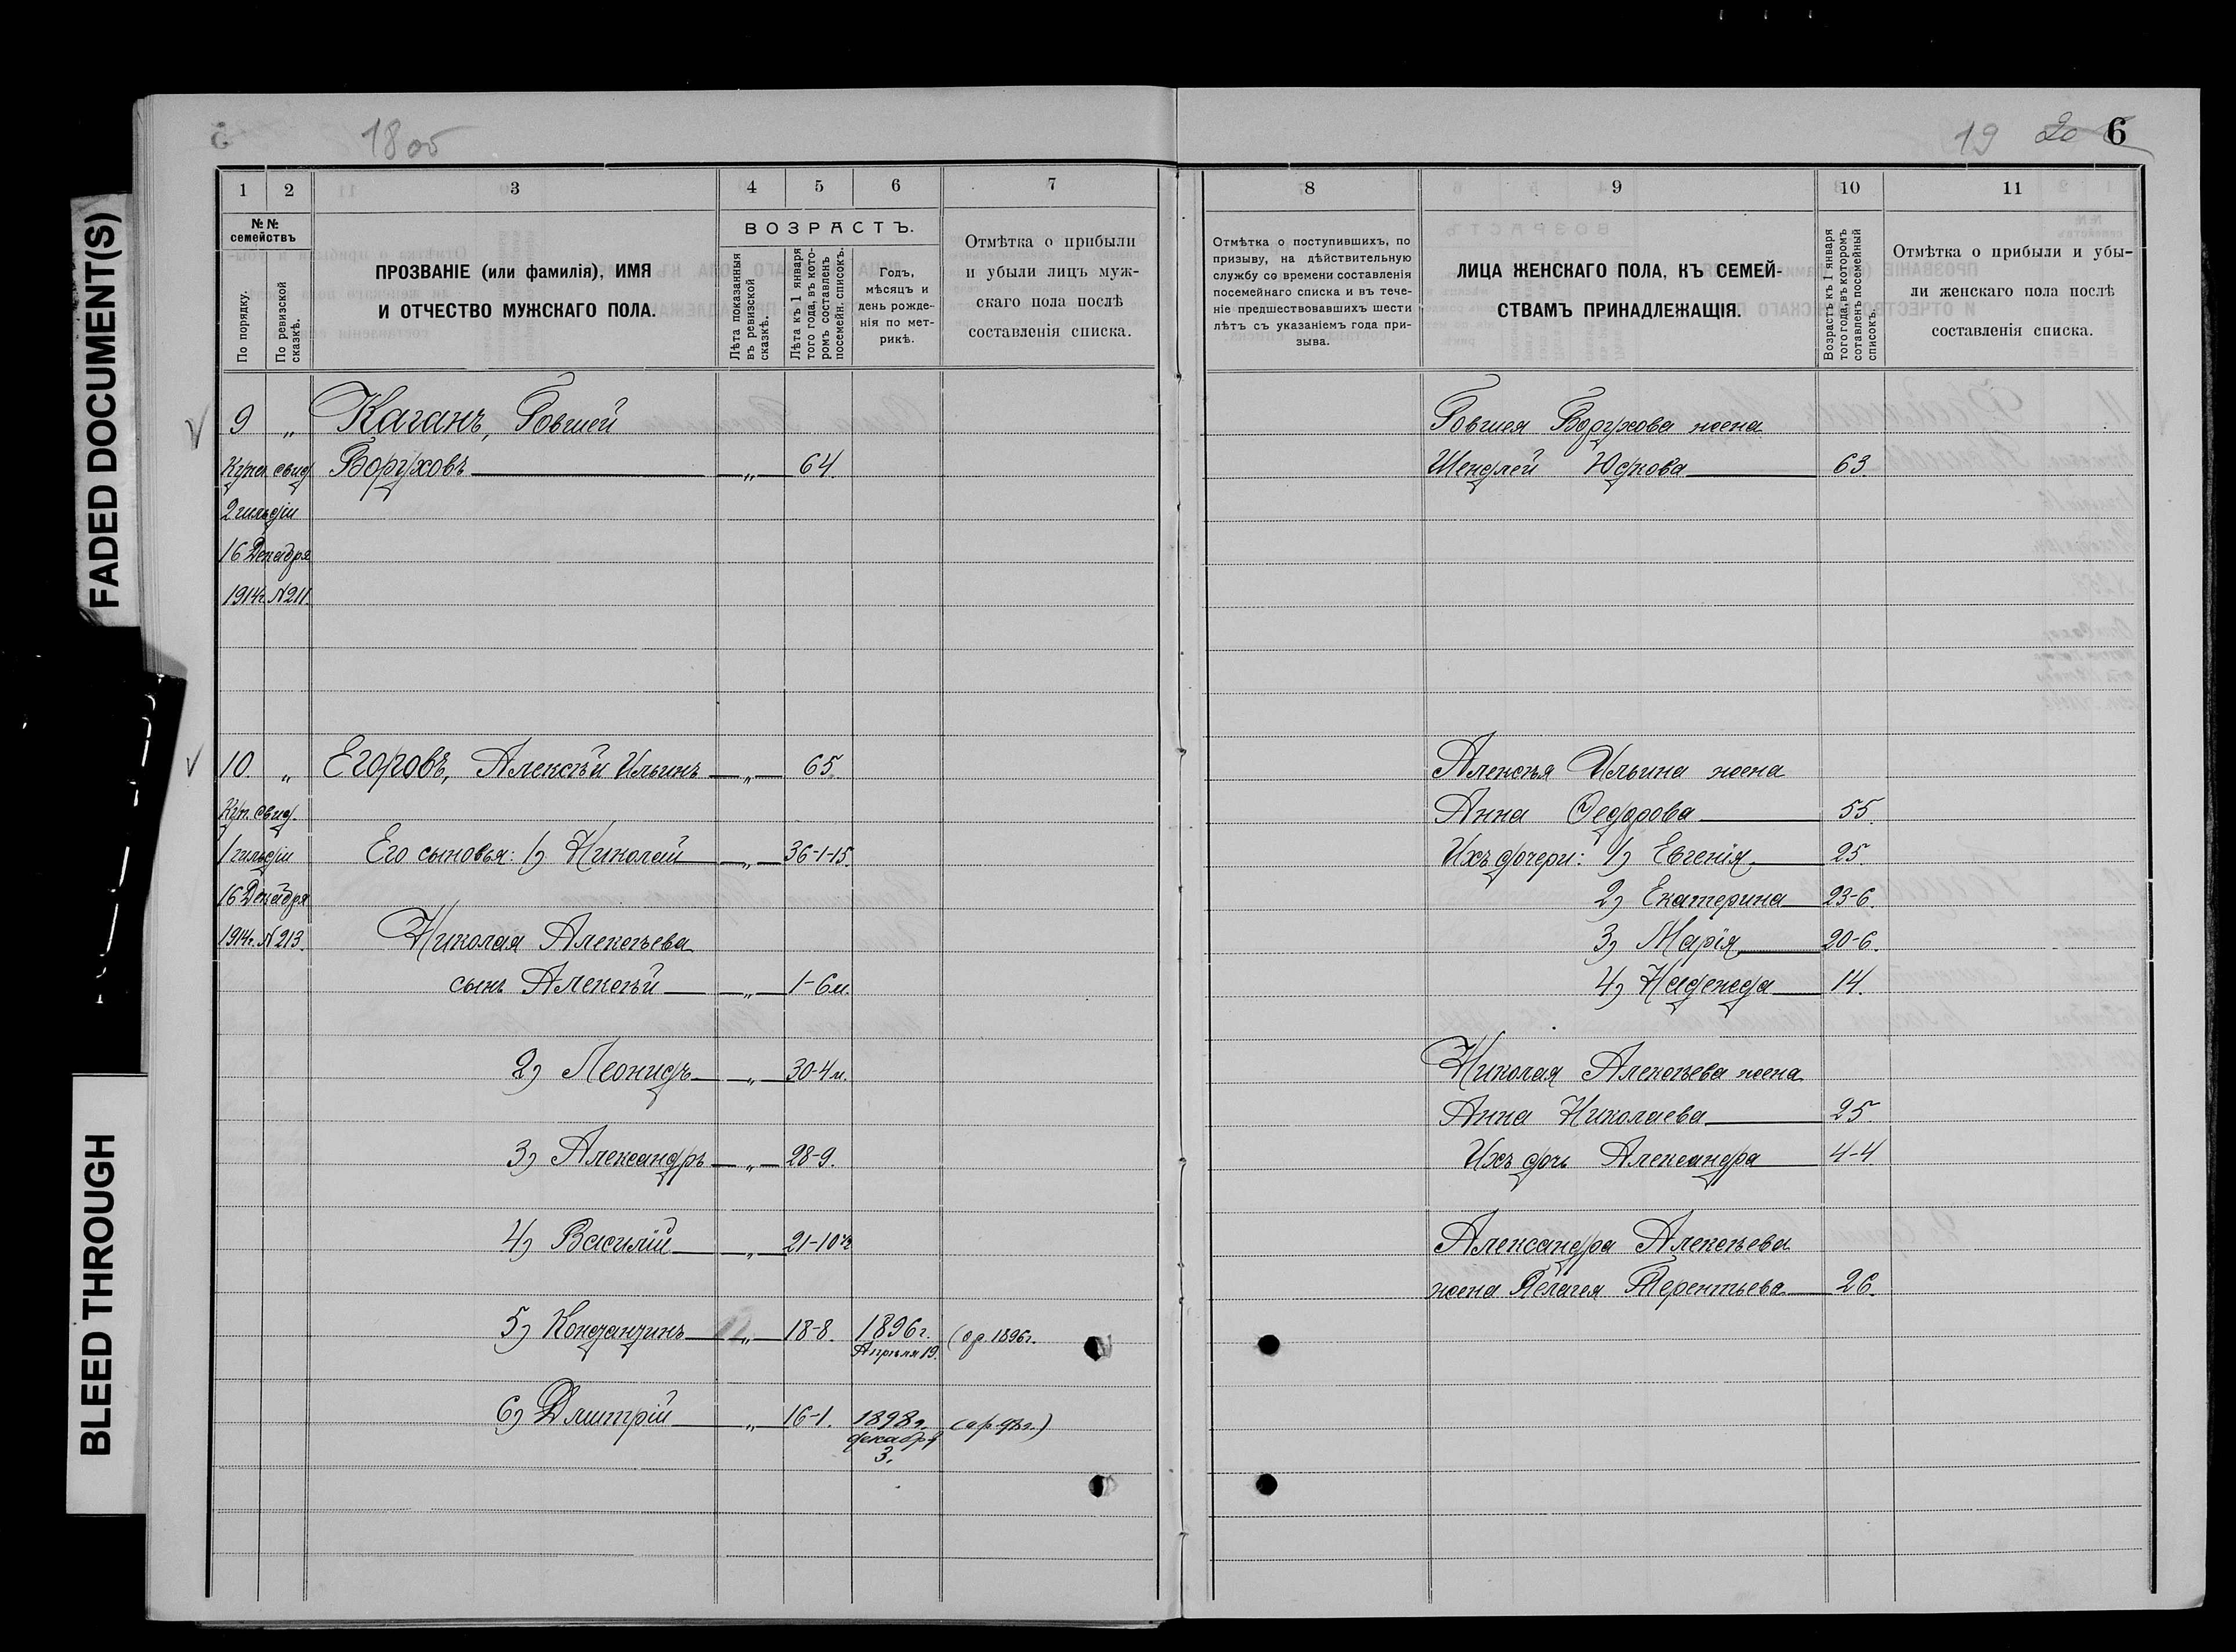 FADED DOCUMENT(S)
BLEED THROUGH
18 об
1 2 3 4 5 6 7
№№ семействъ
По порядку.
По ревизской сказкѣ.
ПРОЗВАНІЕ (или фамилія), ИМЯ
И ОТЧЕСТВО МУЖСКАГО ПОЛА.
ВОЗРАСТЪ.
Лѣта показанныя въ ревизской сказкѣ.
Лѣта къ 1 января того года, въ которомъ составленъ посемейн. списокъ.
Годъ,
мѣсяцъ и
день рожде-
нія по мет-
рикѣ.
Отмѣтка о прибыли
и убыли лицъ муж-
скаго пола послѣ
составленія списка.
9 „ Каганъ, Говшей
Купеч. свид. Боруховъ „ 64.
2 гильдіи
16 Декабря
1914г. №211.
10. „ Егоровъ, Алексѣй Ильинъ „ 65.
Куп. свид.
1 гильдіи Его сыновья: 1) Николай „ 36-1-15.
16 Декабря
1914г. №213. Николая Алексѣева
сынъ Алексѣй „ 1-6м.
2) Леонидъ „ 30-4м.
3) Александръ „ 28-9.
4) Василій „ 21-10
5) Константинъ „ 18-8. 1896г. (ср. 1896г.
Апрѣля 19.
6) Дмитрій „ 16-1. 1898г. (ср. 98г.)
декабря
3.
19 20 6
8 9 10 11
Отмѣтка о поступившихъ, по
призыву, на дѣйствительную
службу со времени составленія
посемейнаго списка и въ тече-
ніе предшествовавшихъ шести
лѣтъ съ указаніемъ года при-
зыва.
ЛИЦА ЖЕНСКАГО ПОЛА, КЪ СЕМЕЙ-
СТВАМЪ ПРИНАДЛЕЖАЩІЯ.
Возрастъ къ 1 января того года, въ которомъ сотавленъ посемейный списокъ.
Отмѣтка о прибыли и убы-
ли женскаго пола послѣ
составленія списка.
Говшея Борухова жена
Шендлей Юдкова 63
Алексѣя Ильина жена
Анна Федорова 55.
Ихъ дочери: 1) Евгенія 25.
2) Екатерина 23-6.
3) Марія 20-6.
4) Надежда 14.
Николая Алексѣева жена
Анна Николаева 25.
Ихъ дочь Александра 4-4
Александра Алексѣева
жена Пелагея Терентьева 26.